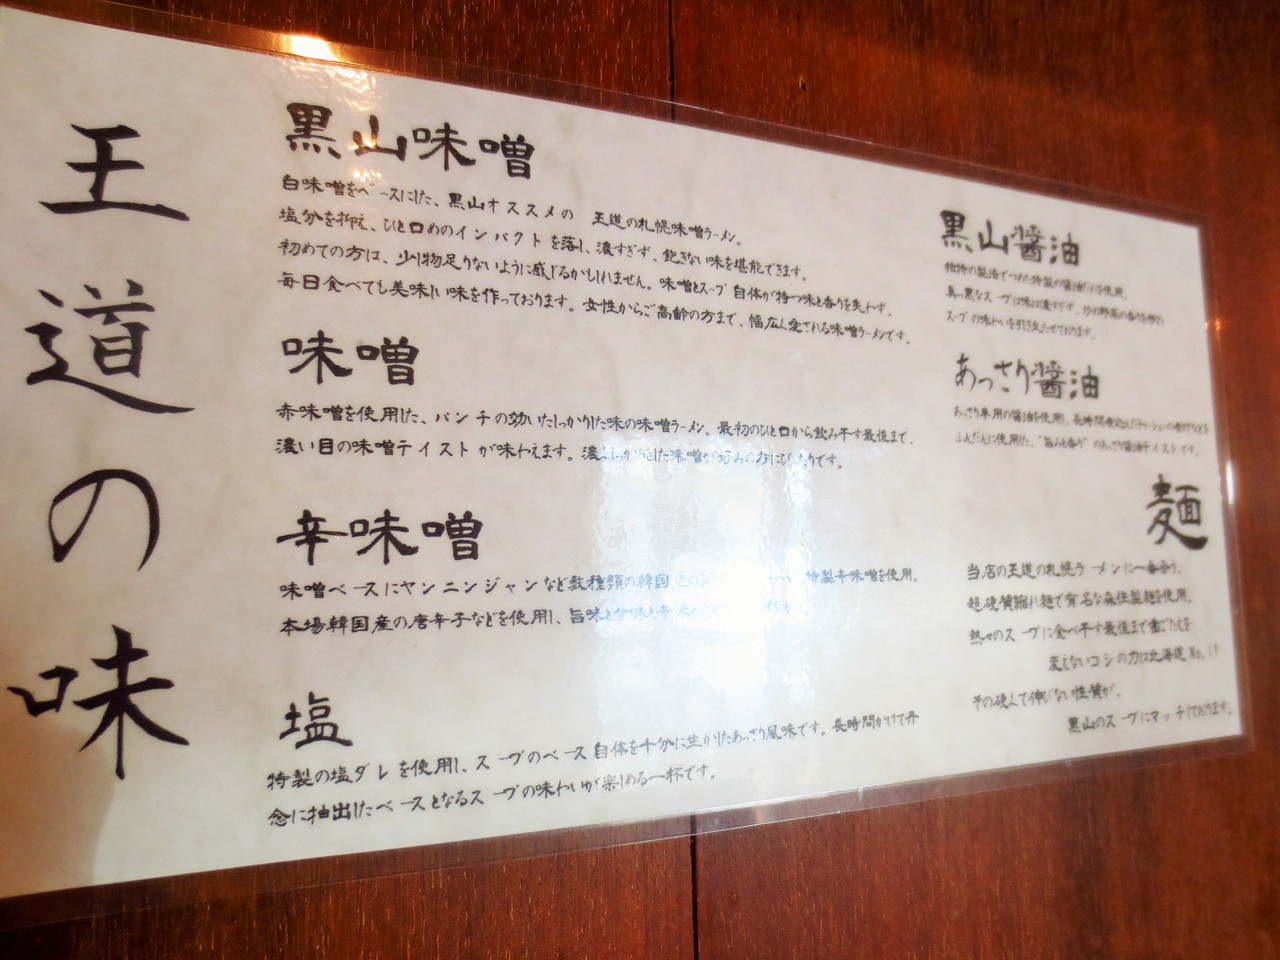 王道の味
黒山味噌
白味噌をベースにした、黒山オススメの 王道の札幌味噌ラーメン。
塩分を抑え、ひと口めのインパクトを落し、濃すぎず、飽きない味を堪能できます。
初めての方は、少し物足りないように感じるかもしれません。味噌とスープ自体が持つ味と香りを失わず、
毎日食べても美味しい味を作っております。女性からご高齢の方まで、幅広く愛される味噌ラーメンです。
味噌
赤味噌を使用した、パンチの効いたしっかりした味の味噌ラーメン。最初のひと口から飲み干す最後まで、
濃い目の味噌テイストが味わえます。濃い しっかりした味噌が好みの方にぴったりです。
辛味噌
味噌ベースにヤンニンジャンなど数種類の韓国産の 特製辛味噌を使用。
本場韓国産の唐辛子などを使用し、旨味と甘味と辛味が 杯
塩
特製の塩ダレを使用し、スープのベース自体を十分に生かしたあっさり風味です。長時間かけて丹
念に抽出したベースとなるスープの味わいが楽しめる一杯です。
黒山醤油
独特の製法でつくた特製の醤油だれを使用。
真っ黒なスープは味は濃すぎず、炒め野菜の香りを
スープの味わいを引き立たせております。
あっさり醤油
あっさり専用の醤油を使用し、長時間煮込んだチャーシューの
ふんだんに使用した、"旨みと香り"のあっさり醤油テイストです。
麺
当店の王道の札幌ラーメンに一番合う、
超硬質縮れ麺で有名な森住製麺を使用。
熱々のスープに食べ干す最後まで歯ごたえを
変えないコシの力は北海道No.1!
その硬くて伸びない性質が、
黒山のスープにマッチしております。